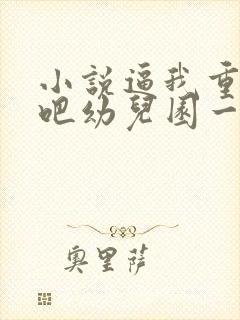 小說逼我重
吧幼兒園一
奧里薩